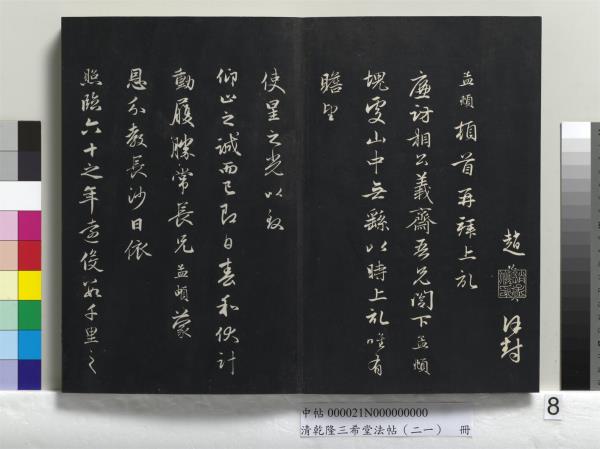 趙 謹封
孟頫頓首再拜上記
廉訪相公義齋吾兄閣下孟頫
塊處山中無繇以時上記唯有
瞻望
使星之光以致
仰止之誠而已即日春和伏計
動履勝常長兄孟頫蒙
恩分教長沙日依
照臨六十之年遠役數千里之
中帖 000021N000000000
清乾隆三希堂法帖(二一) 冊
8